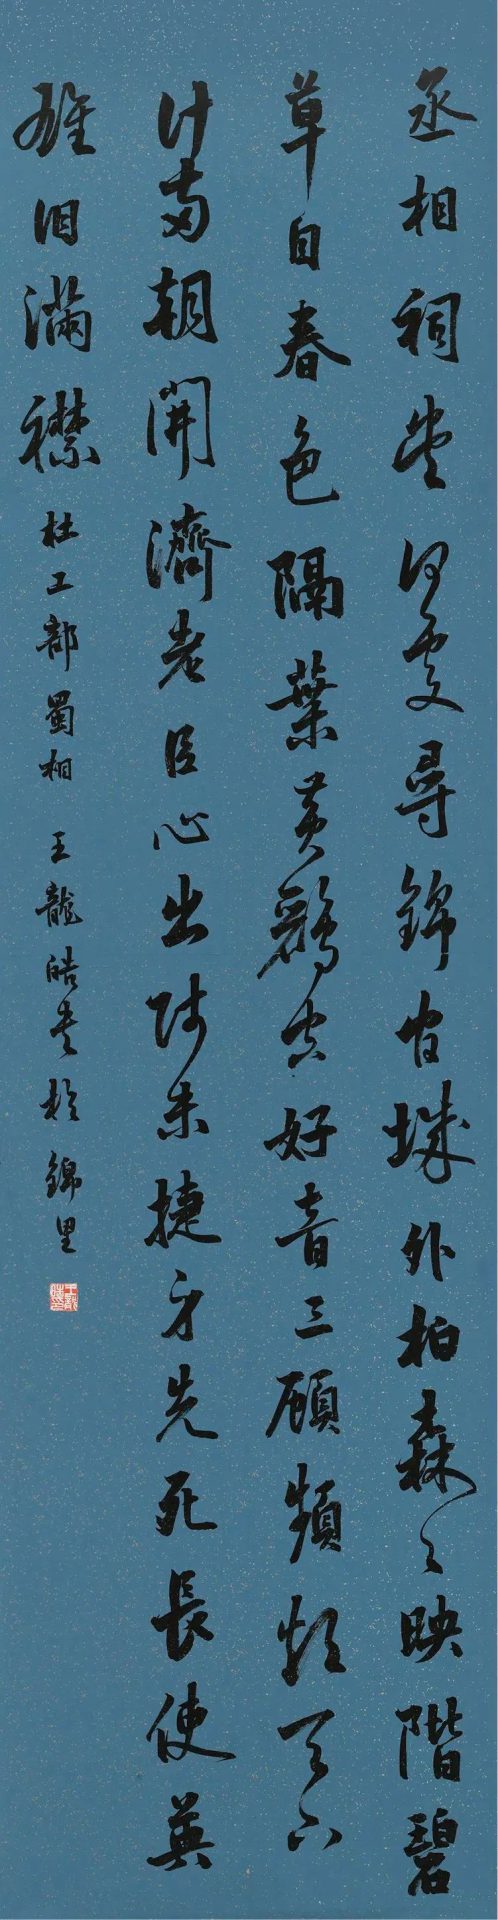 丞相祠堂何處尋錦官城外柏森々映階碧
草自春色隔葉黃鸝空好音三顧頻煩天下
計兩朝開濟老臣心出師未捷身先死長使英
雄泪滿襟 杜工部蜀相 王龍皓書於錦里